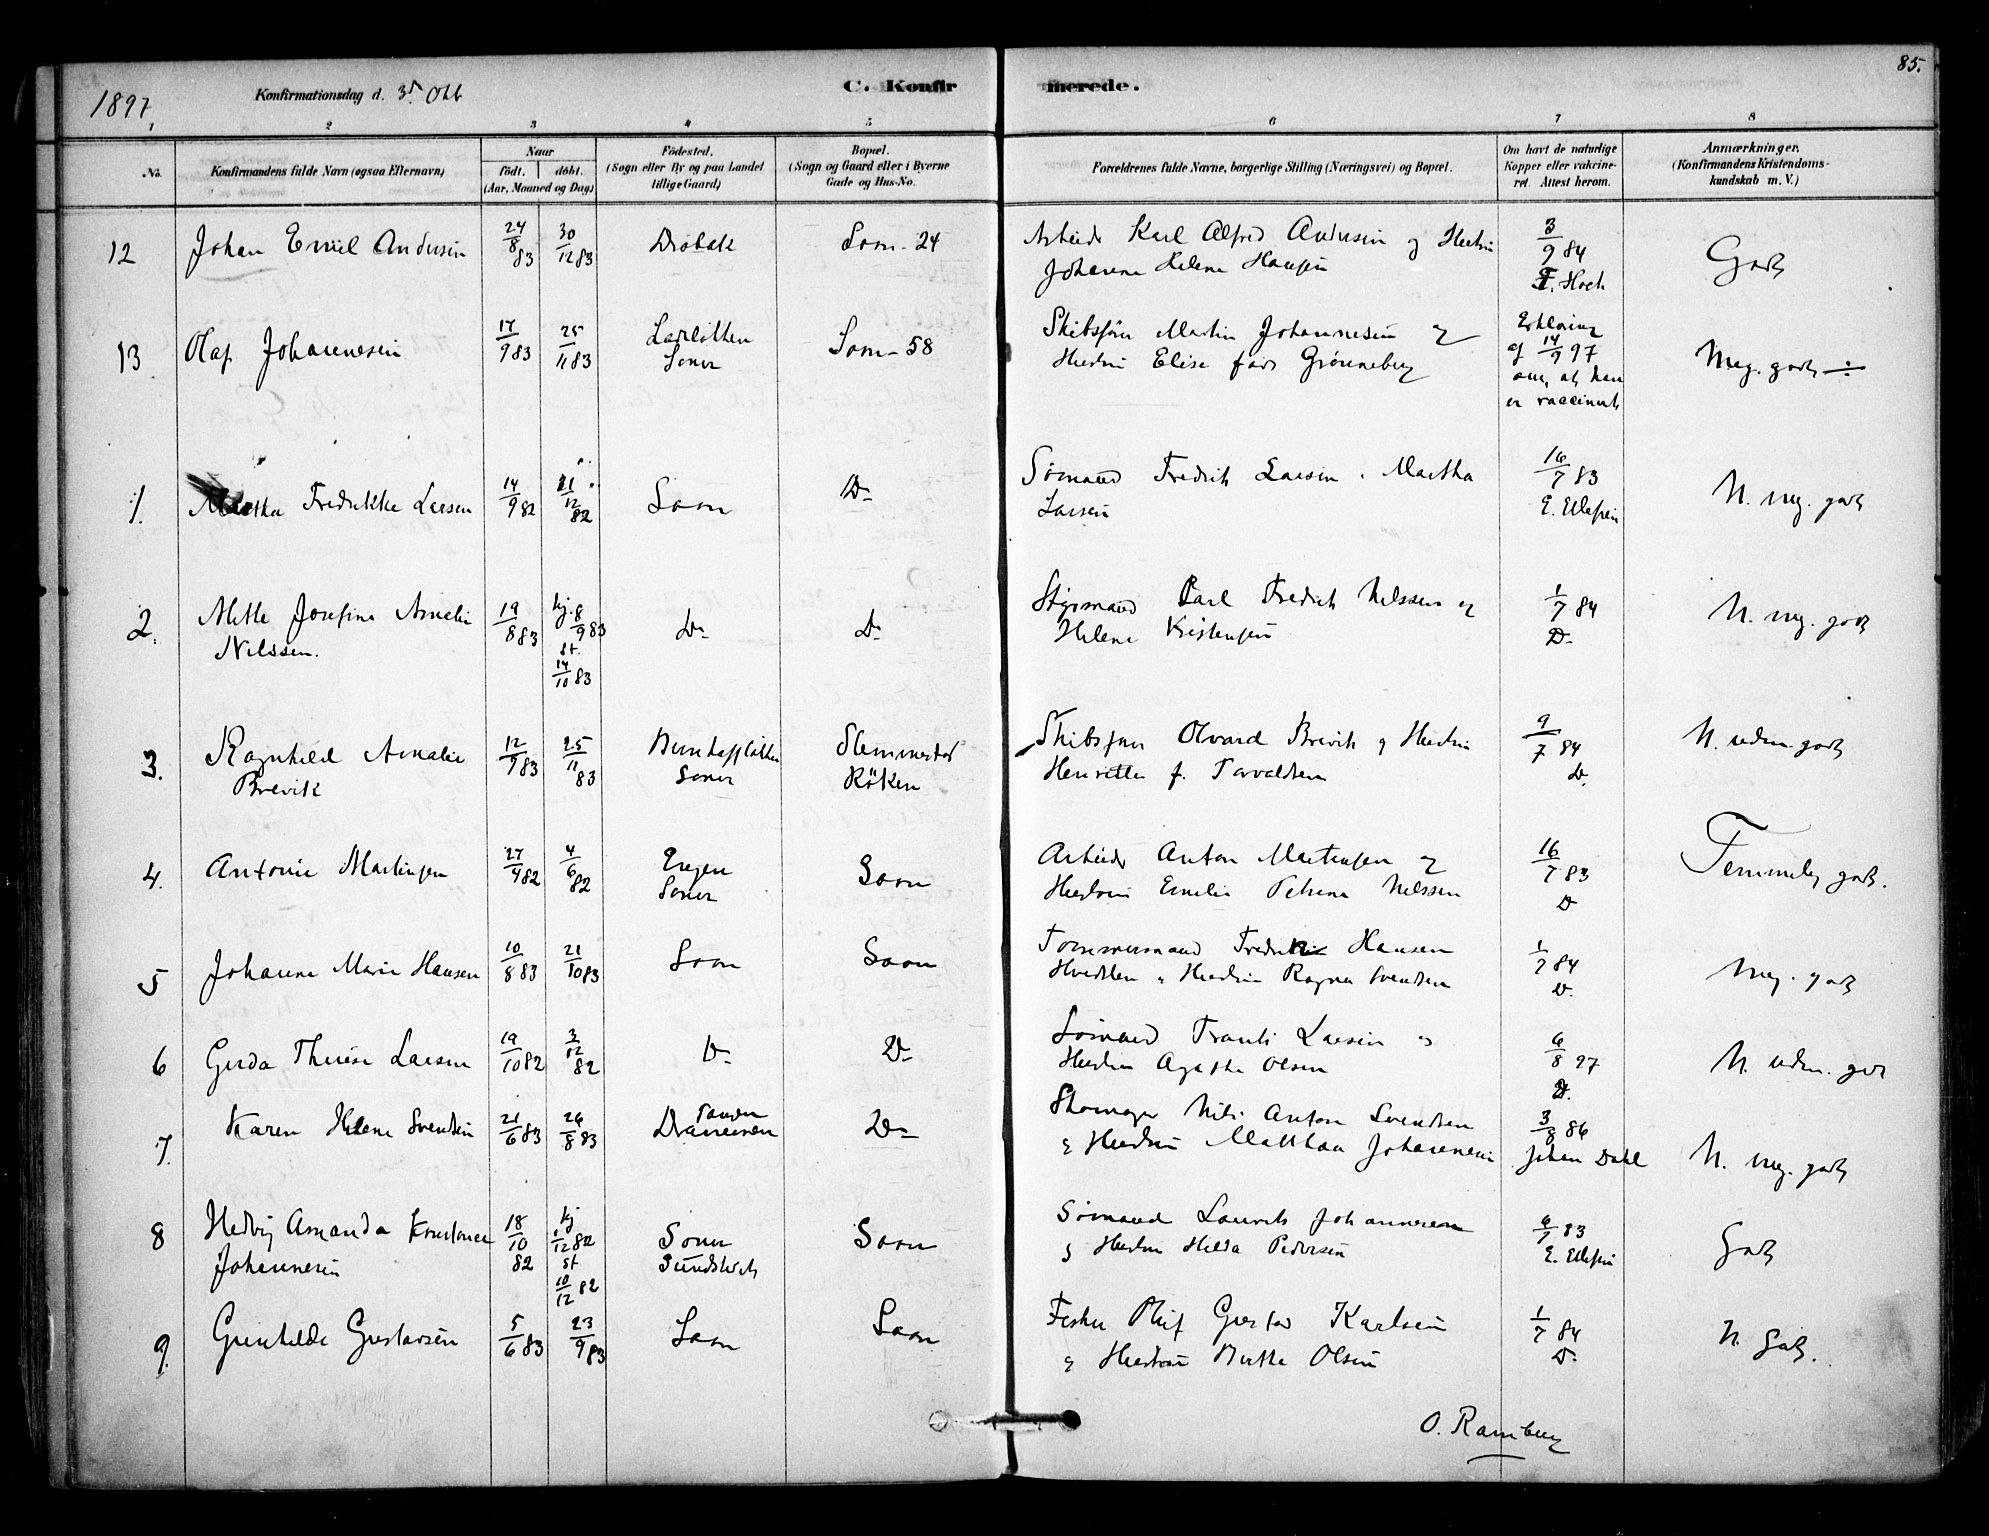 1897
Konfirmationsdag d. 3d. Okt
C. Konfirmerede.
85.
1 2 3 4 5 6 7 8
No.
Konfirmandens fulde Navn (ogsaa Efternavn)
Naar
födt. döbt.
(Aar, Maaned og Dag)
Födested.
(Sogn eller By og paa Landet
tillige Gaard)
Bopæl.
(Sogn og Gaard eller i Byerne
Gade og Hus-No.
Forældrenes fulde Navne, borgerlige Stilling (Næringsvei) og Bopæl.
Om havt de naturlige
Kopper eller vakcine-
ret. Attest herom.
Anmærkninger.
(Konfirmandens Kristendoms-
kundskab m. V.)
12 Johan Emil Andersen 24/8 83 30/12 83 Drøbak Soon - 24
Arbeider Karl Alfred Andersen og Hustru
Johanne Helene Hansen
3/9 84
F. Hoch
Godt
13 Olaf Johannesen 17/9 83 25/11 83
Soner
Soon - 58
Skibsfører Martin Johannesen og
Hustru Elise født Grønneberg
Erklæring
af 14/9 97
om, at han
er vaccineret
Meg. godt ÷
1. Martha Fredrikke Larsen 14/9 82 21/12 82 Soon Do
Sømand Fredrik Larsen Martha
Larsen
16/7 83
E. Ellefsen
N. meg. godt
2. Mette Josefine Amalie
Nilssen.
19/8 83
hj. 8/9 83
st.
14/10 83
Do Do
Styrmand Carl Fredrik Nilssen og
Helene Kristensen
1/7 84
Do
N. meg. godt
3. Ragnhild Amalie
Brevik
12/9 83 25/11 83
Soner
Slemmestad
Röken
Skibsfører Olvard Brevik og Hustru
Henrette f. Torvaldsen
9/7 84
Do
N. udm. godt
4. Antonie Martinsen 27/4 82 4/6 82
Soner
Soon
Arbeider Anton Martinsen og
Hustru Emilie Petrine Nilssen
16/7 83
Do
Temmelig godt.
5 Johanne Marie Hansen 10/8 83 21/10 83 Soon Soon
Tømmermand Fredrik Hansen
og Hustru Ragna Svendsen
1/7 84
Do.
Meg. godt
6 Gerda Therese Larsen 19/10 82 3/12 82 Do Do
Sømand Frantz Larsen og
Hustru Agathe Olsen
6/8 97
Do.
N. udm. godt
7. Karen Helene Svendsen 21/6 83 26/8 83
Drammen
Do
Skomager Nils Anton Svendsen
og Hustru Matthea Johannesen
3/8 86
Johan Dahl
N. meg. godt
8 Hedvig Amanda Konstance
Johannesen
18/10 82
hj
1/12 82
st
10/12 82
Soner
Soon
Sømand Laurits Johannesen
og Hustru Hilda Pedersen
6/7 83
E. Ellefsen
Godt
9. Gunhilde Gustavsen 5/6 83 23/9 83 Soon Soon
Fisker Oluf Gustav Karlsen
og Hustru Berthe Olsen
1/7 84
Do.
N. Godt.
O. Ramberg